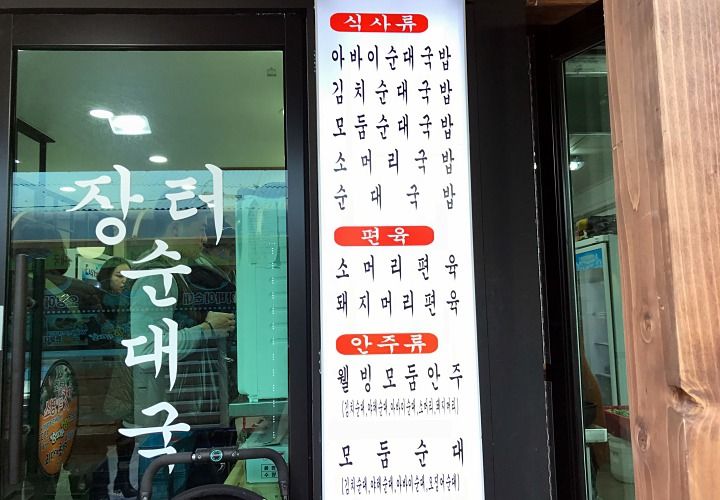 장터
순대국
식사류
아바이순대국밥
김치순대국밥
모듬순대국밥
소머리국밥
순대국밥
편육
소머리편육
돼지머리편육
안주류
웰빙모듬안주
(김치순대,야채순대,아바이순대,소머리,돼지머리)
모듬순대
(김치순대,야채순대,아바이순대,오징어순대)